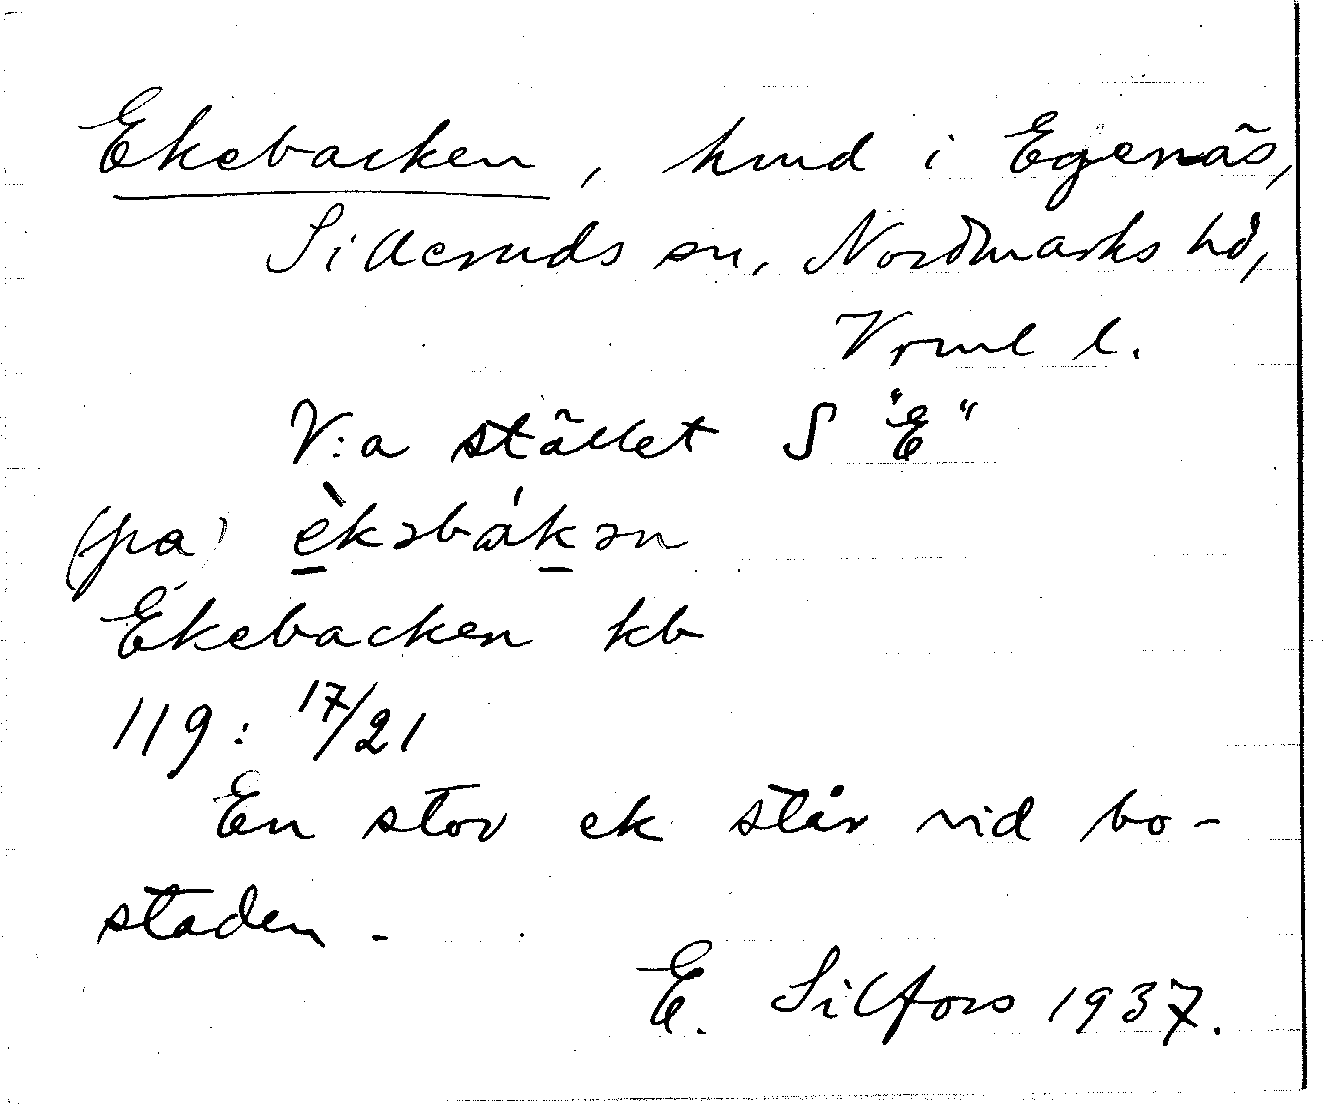 Ekebacken, hmd i Egenäs,
Silleruds sn, Nordmarks hd,
Vrml l.
V:a stället S "E"
(pa) èkəbákən
Ekebacken kb
119: 17/21
En stor ek står vid bo-
staden.
E. Silfors 1937.